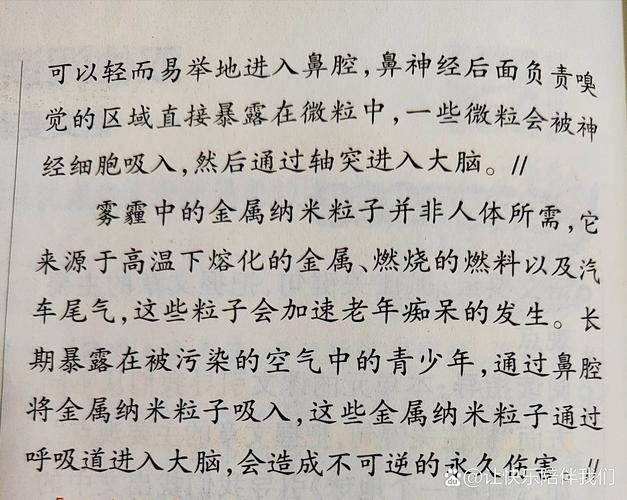 可以轻而易举地进入鼻腔，鼻神经后面负责嗅
觉的区域直接暴露在微粒中，一些微粒会被神
经细胞吸入，然后通过轴突进入大脑。//
雾霾中的金属纳米粒子并非人体所需，它
来源于高温下熔化的金属、燃烧的燃料以及汽
车尾气，这些粒子会加速老年痴呆的发生。长
期暴露在被污染的空气中的青少年，通过鼻腔
将金属纳米粒子吸入，这些金属纳米粒子通过
呼吸道进入大脑，会造成不可逆的永久伤害。//
@让快乐陪伴我们